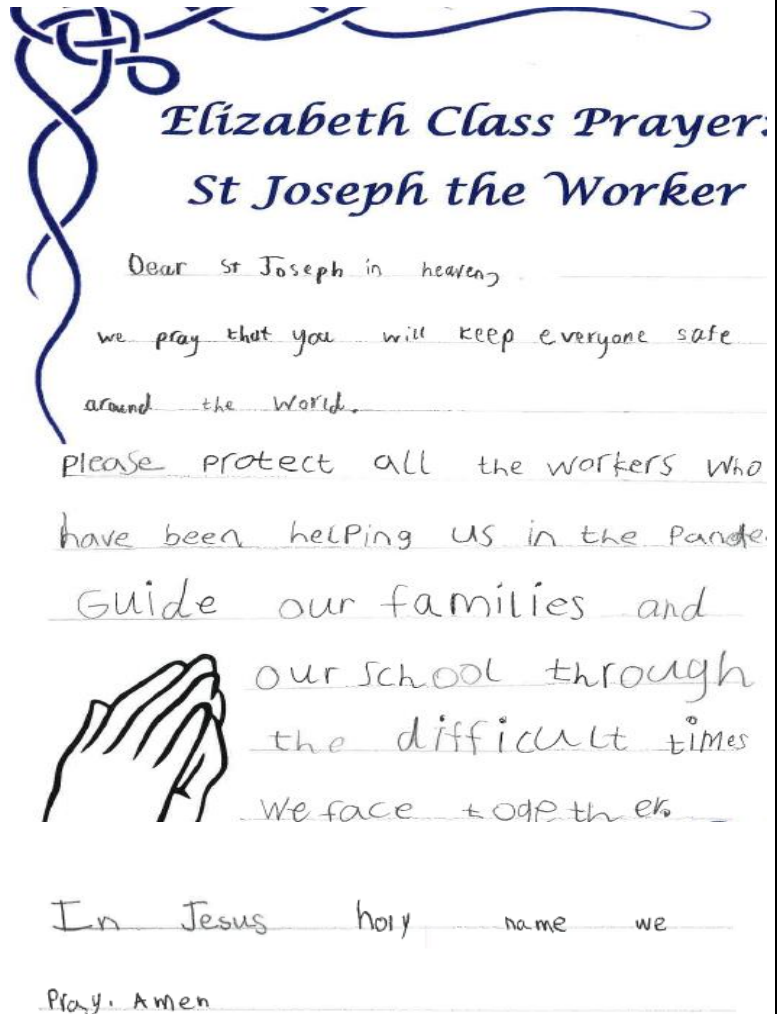 Elizabeth Class Prayer:
St Joseph the Worker
Dear St Joseph in heaven,
we pray that you will keep everyone safe
around the world.
Please protect all the workers who
have been helping us in the Pande
Guide our families and
our school through
the difficult times
We face together.
In Jesus holy name we
Pray. Amen